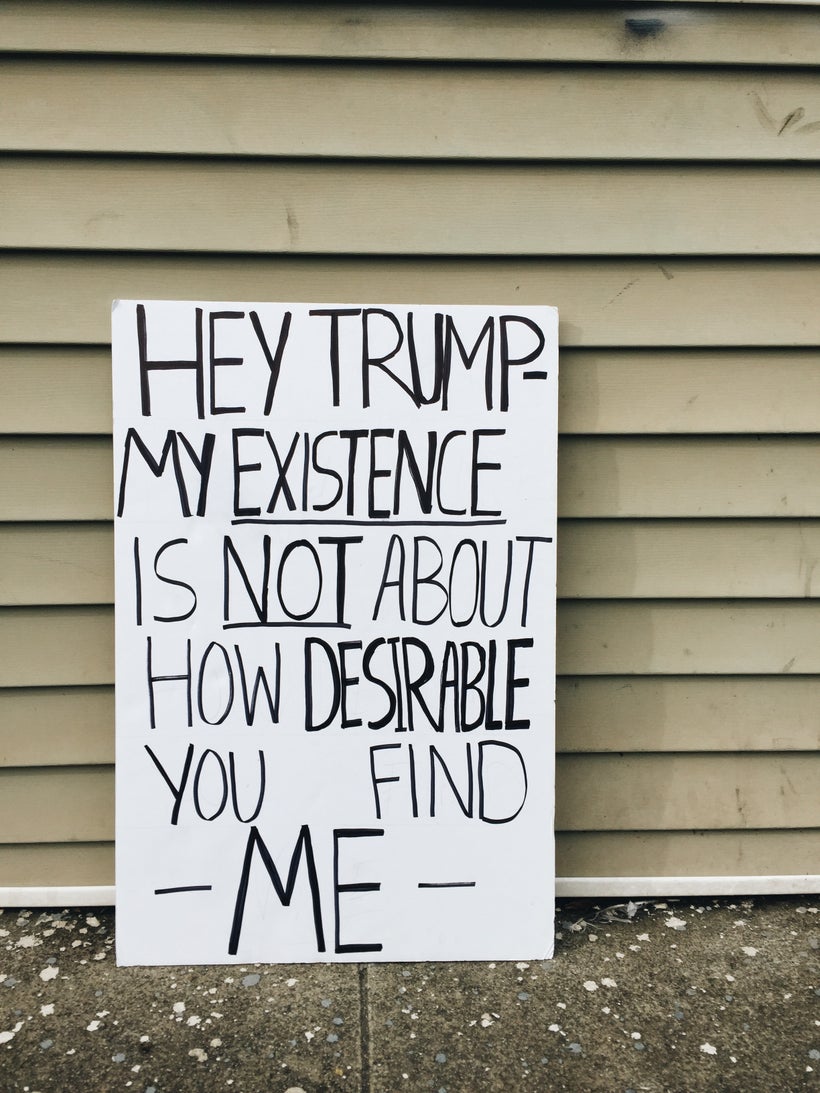 HEY TRUMP-
MY EXISTENCE
IS NOT ABOUT
HOW DESIRABLE
YOU FIND
- ME -